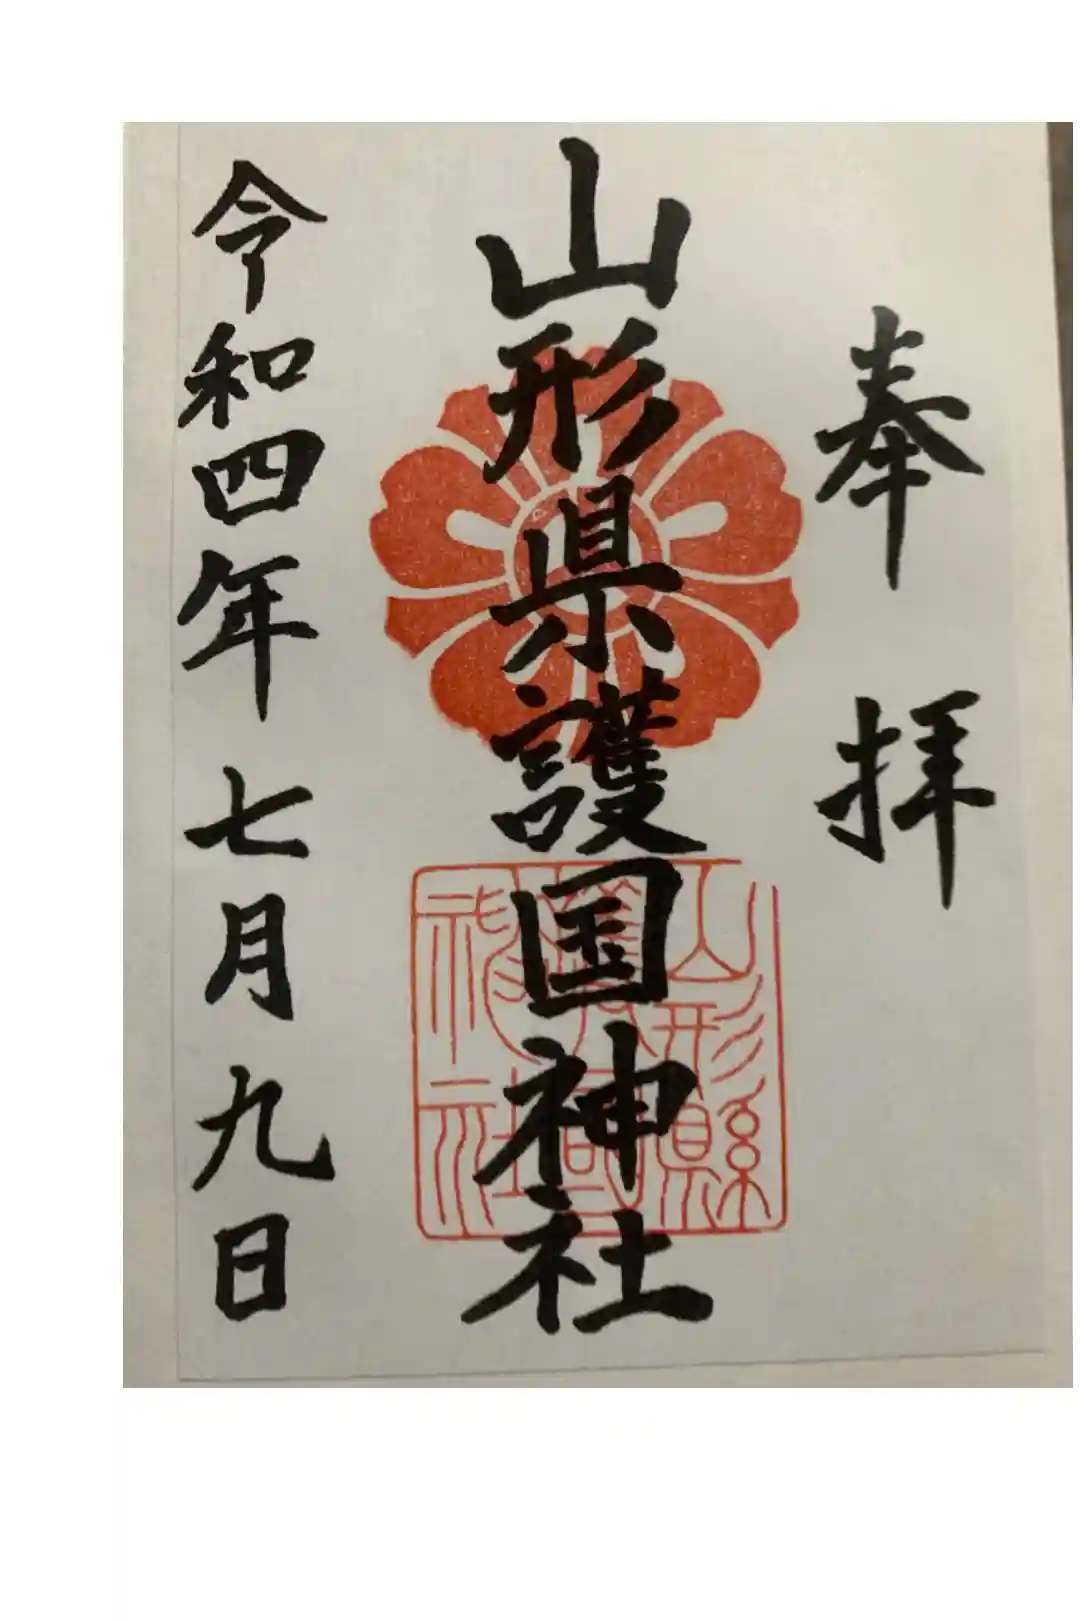 奉拝
山形県護国神社
山形縣護國神社
令和四年七月九日